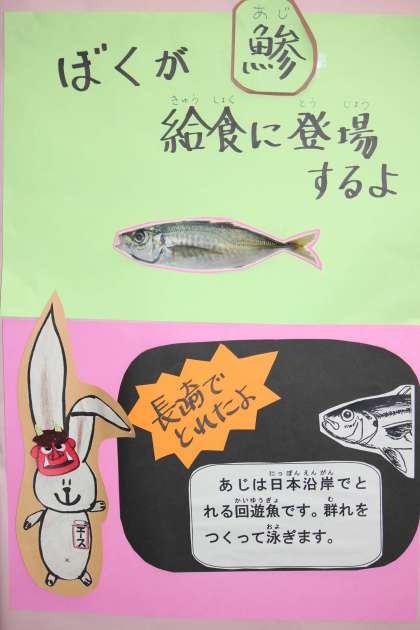 あじ
ぼくが 鯵
きゅうしょく とうじょう
給食に登場
するよ
長崎で
とれたよ
にっぽんえんがん
あじは日本沿岸でと
かいゆうぎょ む
れる回遊魚です。群れを
およ
つくって泳ぎます。
エース